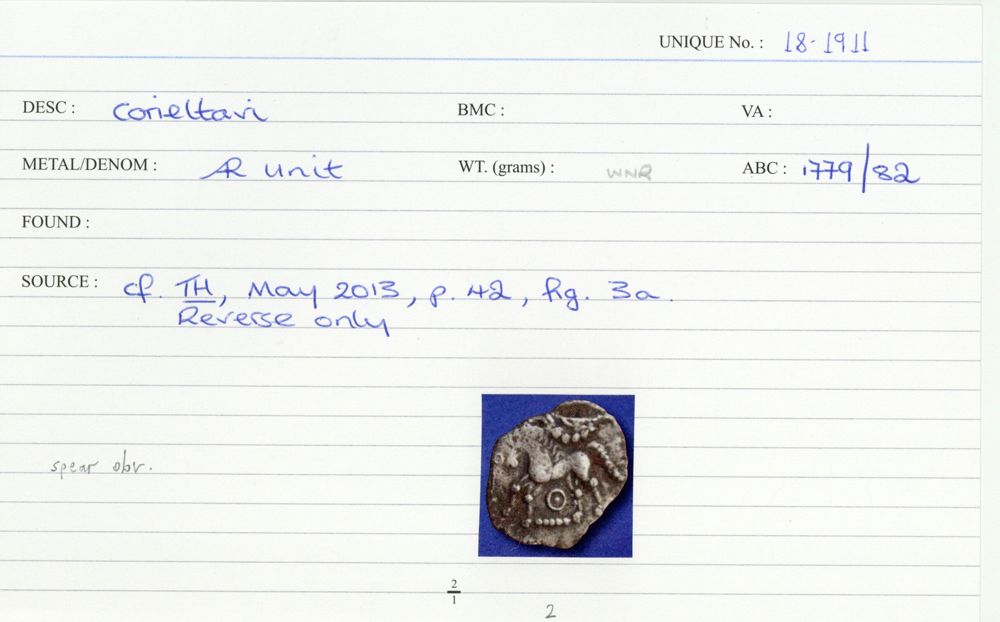 UNIQUE No. : 18-1911
DESC : Corieltavi BMC : VA :
METAL/DENOM : AR Unit WT. (grams) : WNR ABC : 1779/82
FOUND :
SOURCE : cf. TH, May 2013, p. 42, fig. 3a.
Reverse only
spear obv.
2
1
2